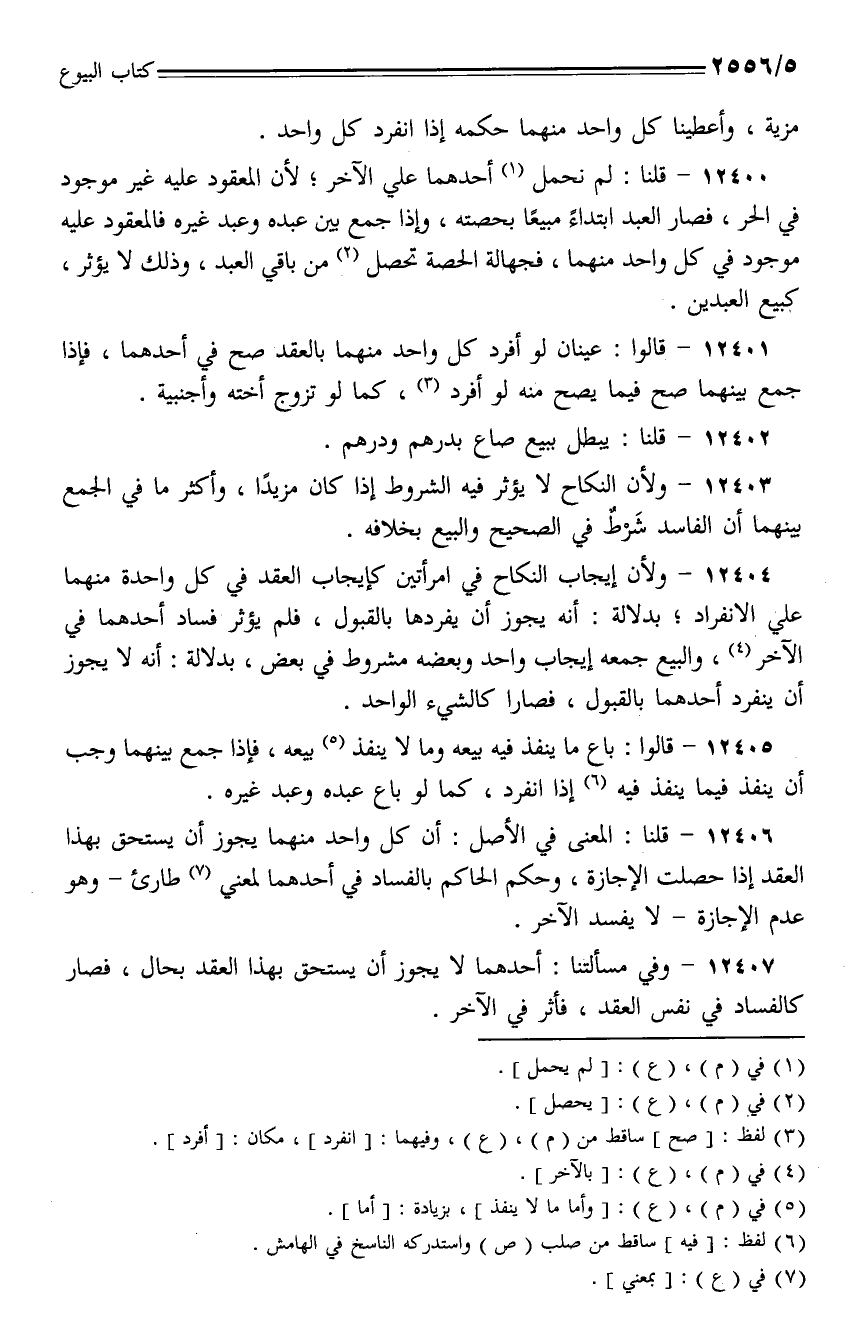 ٢٥٥٦/٥ كتاب البيوع
مزية ، وأعطينا كل واحد منهما حكمه إذا انفرد كل واحد .
١٢٤٠٠ – قلنا : لم نحمل (١) أحدهما علي الآخر ؛ لأن المعقود عليه غير موجود
في الحر ، فصار العبد ابتداءً مبيعًا بحصته ، وإذا جمع بين عبده وعبد غيره فالمعقود عليه
موجود في كل واحد منهما ، فجهالة الحصة تحصل (٢) من باقي العبد ، وذلك لا يؤثر ،
كبيع العبدين .
١٢٤٠١ – قالوا : عينان لو أفرد كل واحد منهما بالعقد صح في أحدهما ، فإذا
جمع بينهما صح فيما يصح منه لو أفرد (٣) ، كما لو تزوج أخته وأجنبية .
١٢٤٠٢ – قلنا : يبطل ببيع صاع بدرهم ودرهم .
١٢٤٠٣ – ولأن النكاح لا يؤثر فيه الشروط إذا كان مزيدًا ، وأكثر ما في الجمع
بينهما أن الفاسد شَرْطٌ في الصحيح والبيع بخلافه .
١٢٤٠٤ – ولأن إيجاب النكاح في امرأتين كإيجاب العقد في كل واحدة منهما
علي الانفراد ؛ بدلالة : أنه يجوز أن يفردها بالقبول ، فلم يؤثر فساد أحدهما في
الآخر (٤) ، والبيع جمعه إيجاب واحد وبعضه مشروط في بعض ، بدلالة : أنه لا يجوز
أن ينفرد أحدهما بالقبول ، فصارا كالشيء الواحد .
١٢٤٠٥ – قالوا : باع ما ينفذ فيه بيعه وما لا ينفذ (٥) بيعه ، فإذا جمع بينهما وجب
أن ينفذ فيما ينفذ فيه (٦) إذا انفرد ، كما لو باع عبده وعبد غيره .
١٢٤٠٦ – قلنا : المعنى في الأصل : أن كل واحد منهما يجوز أن يستحق بهذا
العقد إذا حصلت الإجازة ، وحكم الحاكم بالفساد في أحدهما لمعني (٧) طارئ – وهو
عدم الإجازة – لا يفسد الآخر .
١٢٤٠٧ – وفي مسألتنا : أحدهما لا يجوز أن يستحق بهذا العقد بحال ، فصار
كالفساد في نفس العقد ، فأثر في الآخر .
(١) في ( م ) ، ( ع ) : [ لم يحمل ] .
(٢) في ( م ) ، ( ع ) : [ يحصل ] .
(٣) لفظ : [ صح ] ساقط من ( م ) ، ( ع ) ، وفيهما : [ انفرد ] ، مكان : [ أفرد ] .
(٤) في ( م ) ، ( ع ) : [ بالآخر ] .
(٥) في ( م ) ، ( ع ) : [ وأما ما لا ينفذ ] ، بزيادة : [ أما ] .
(٦) لفظ : [ فيه ] ساقط من صلب ( ص ) واستدركه الناسخ في الهامش .
(٧) في ( ع ) : [ بمعني ] .